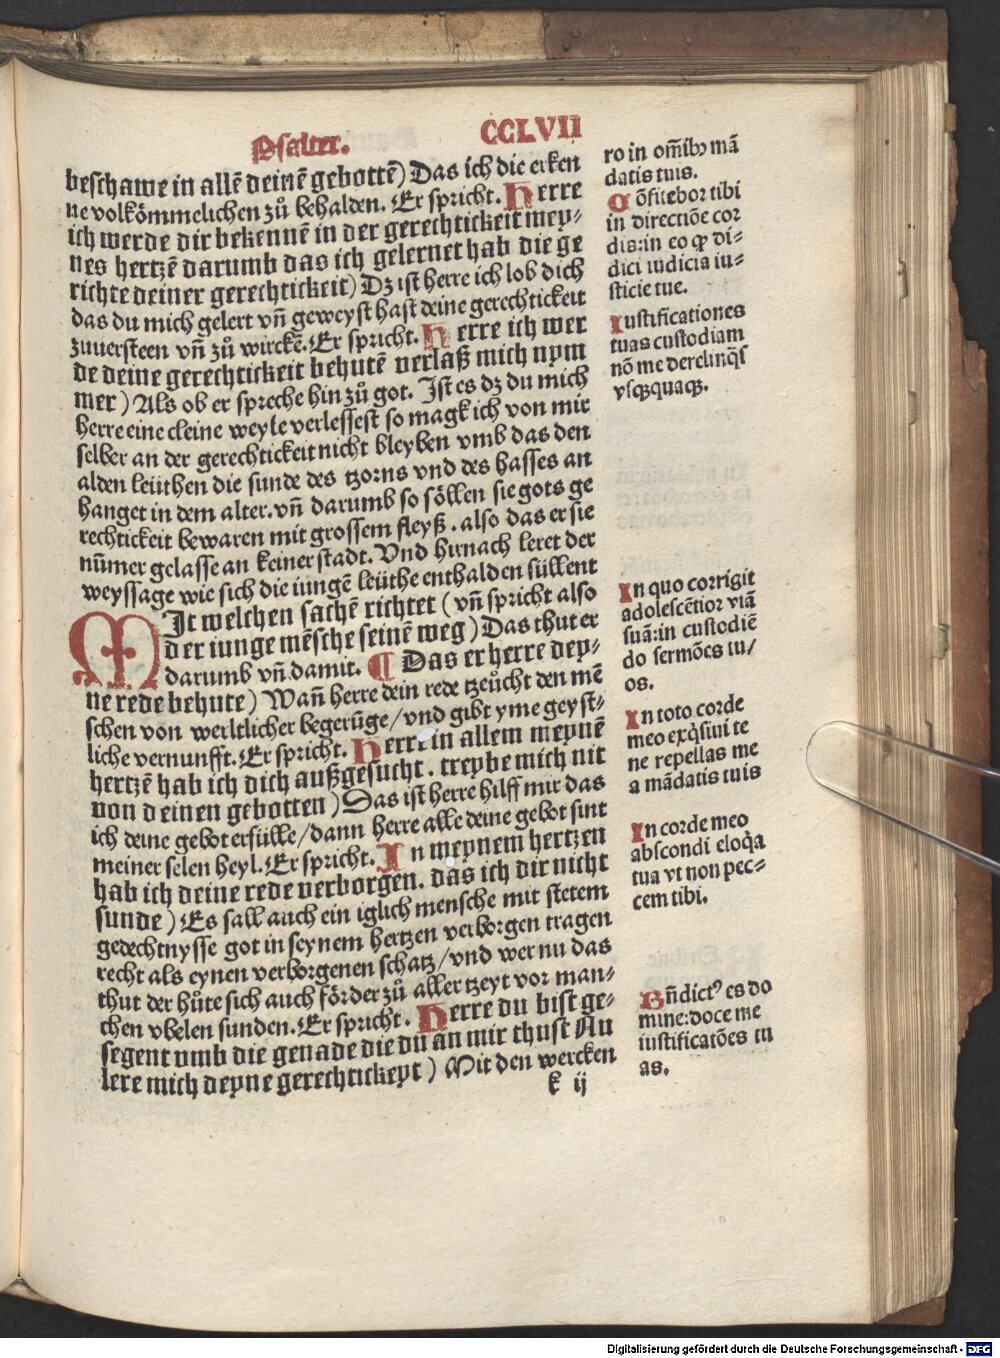 Psalter.
CCLVII
beschawe in allē deinē gebottē) Das ich die erken
ne volkömmelichen zů behalden. Er spricht. Herre
ich werde dir bekennē in der gerechtickeit mey⸗
nes hertzē darumb das ich gelernet hab die ge
richte deiner gerechtickeit) Dz ist herre ich lob dich
das du mich gelert vñ geweyst hast deine gerechtickeit
zuuersteen vñ zů wirckē. Er spricht. Herre ich wer
de deine gerechtickeit behutē verlaß mich nym
mer) Als ob er spreche hin zů got. Ist es dz du mich
herre eine cleine weyle verlessest so magk ich von mir
selber an der gerechtickeit nicht bleyben vmb das den
alden leüthen die sunde des tzorns vnd des hasses an
hanget in dem alter. vñ darumb so söllen sie gots ge
rechtickeit bewaren mit grossem fleyß. also das er sie
nümer gelasse an keiner stadt. Vnd hirnach leret der
weyssage wie sich die iungē leüthe enthalden süllent
MIt welchen sachē richtet (vñ spricht also
der iunge mēsche seinē weg) Das thut er
darumb vñ damit. ¶ Das er herre dey⸗
ne rede behute) Wañ herre dein rede tzeücht den mē
schen von werltlicher begerüge/vnd gibt yme geyst⸗
liche vernunfft. Er spricht. Herre in allem meynē
hertzē hab ich dich außgesucht. treybe mich nit
von deinen gebotten) Das ist herre hilff mir das
ich deine gebot erfülle/dann herre alle deine gebot sint
meiner selen heyl. Er spricht. In meynem hertzen
hab ich deine rede verborgen. das ich dir nicht
sunde) Es sall auch ein iglich mensche mit stetem
gedechtnysse got in seynem hertzen verborgen tragen
recht als eynen verborgenen schatz/vnd wer nu das
thut der hůte sich auch förder zů aller tzeyt vor man⸗
chen vbelen sunden. Er spricht. Herre du bist ge⸗
segent vmb die genade die du an mir thust Nu
lere mich deyne gerechtickeyt) Mit den wercken
k ij
ro in oīībꝫ mā
datis tuis.
Cōfitebor tibi
in directiōe cor
dis:in eo ꝙ di⸗
dici iudicia iu⸗
sticie tue.
Iustificationes
tuas custodiam
nō me derelinq̄s
vsqꝫquaqꝫ.
In quo corrigit
adolescētior viā
suā:in custodiē
do sermōes tu/
os.
In toto corde
meo exq̇siui te
ne repellas me
a mādatis tuis
In corde meo
abscondi eloq̇a
tua vt non pec⸗
cem tibi.
Bñdictꝰ es do
mine:doce me
iustificatōes tu
as.
Digitalisierung gefördert durch die Deutsche Forschungsgemeinschaft - DFG